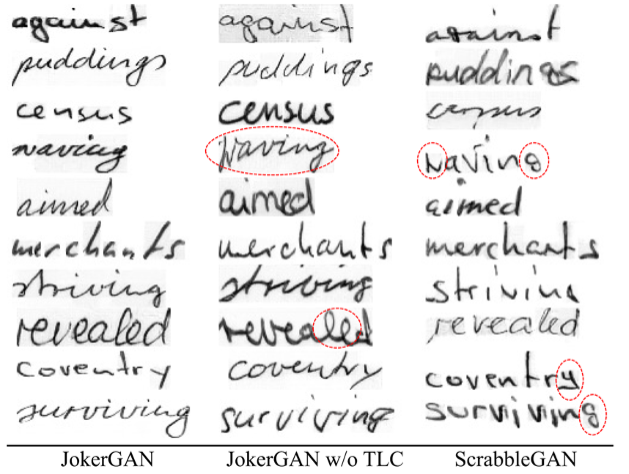 against against against
puddings puddings puddings
census census census
waving waving waving
aimed aimed aimed
merchants merchants merchants
striving striving striving
revealed revealed revealed
coventry coventry coventry
surviving surviving surviving
JokerGAN JokerGAN w/o TLC ScrabbleGAN